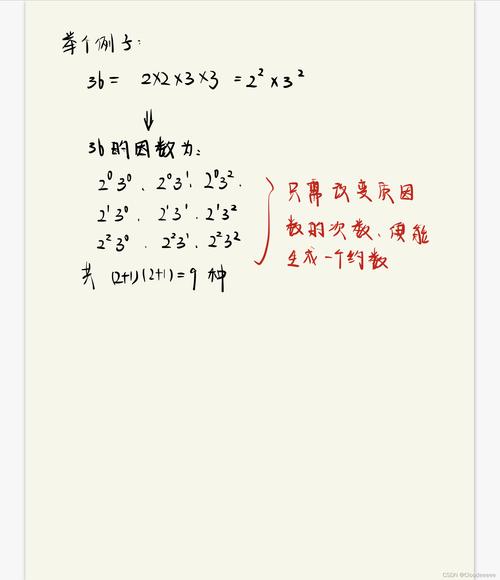 举个例子:
36 = 2×2×3×3 = 2²×3²
⇓
36的因数为:
2⁰3⁰、2⁰3¹、2⁰3²、
2¹3⁰、2¹3¹、2¹3²
2²3⁰、2²3¹、2²3²
共 (2+1)(2+1)=9 种
只需改变质因
数的次数、便能
生成一个约数
CSDN @Cloudeeeee